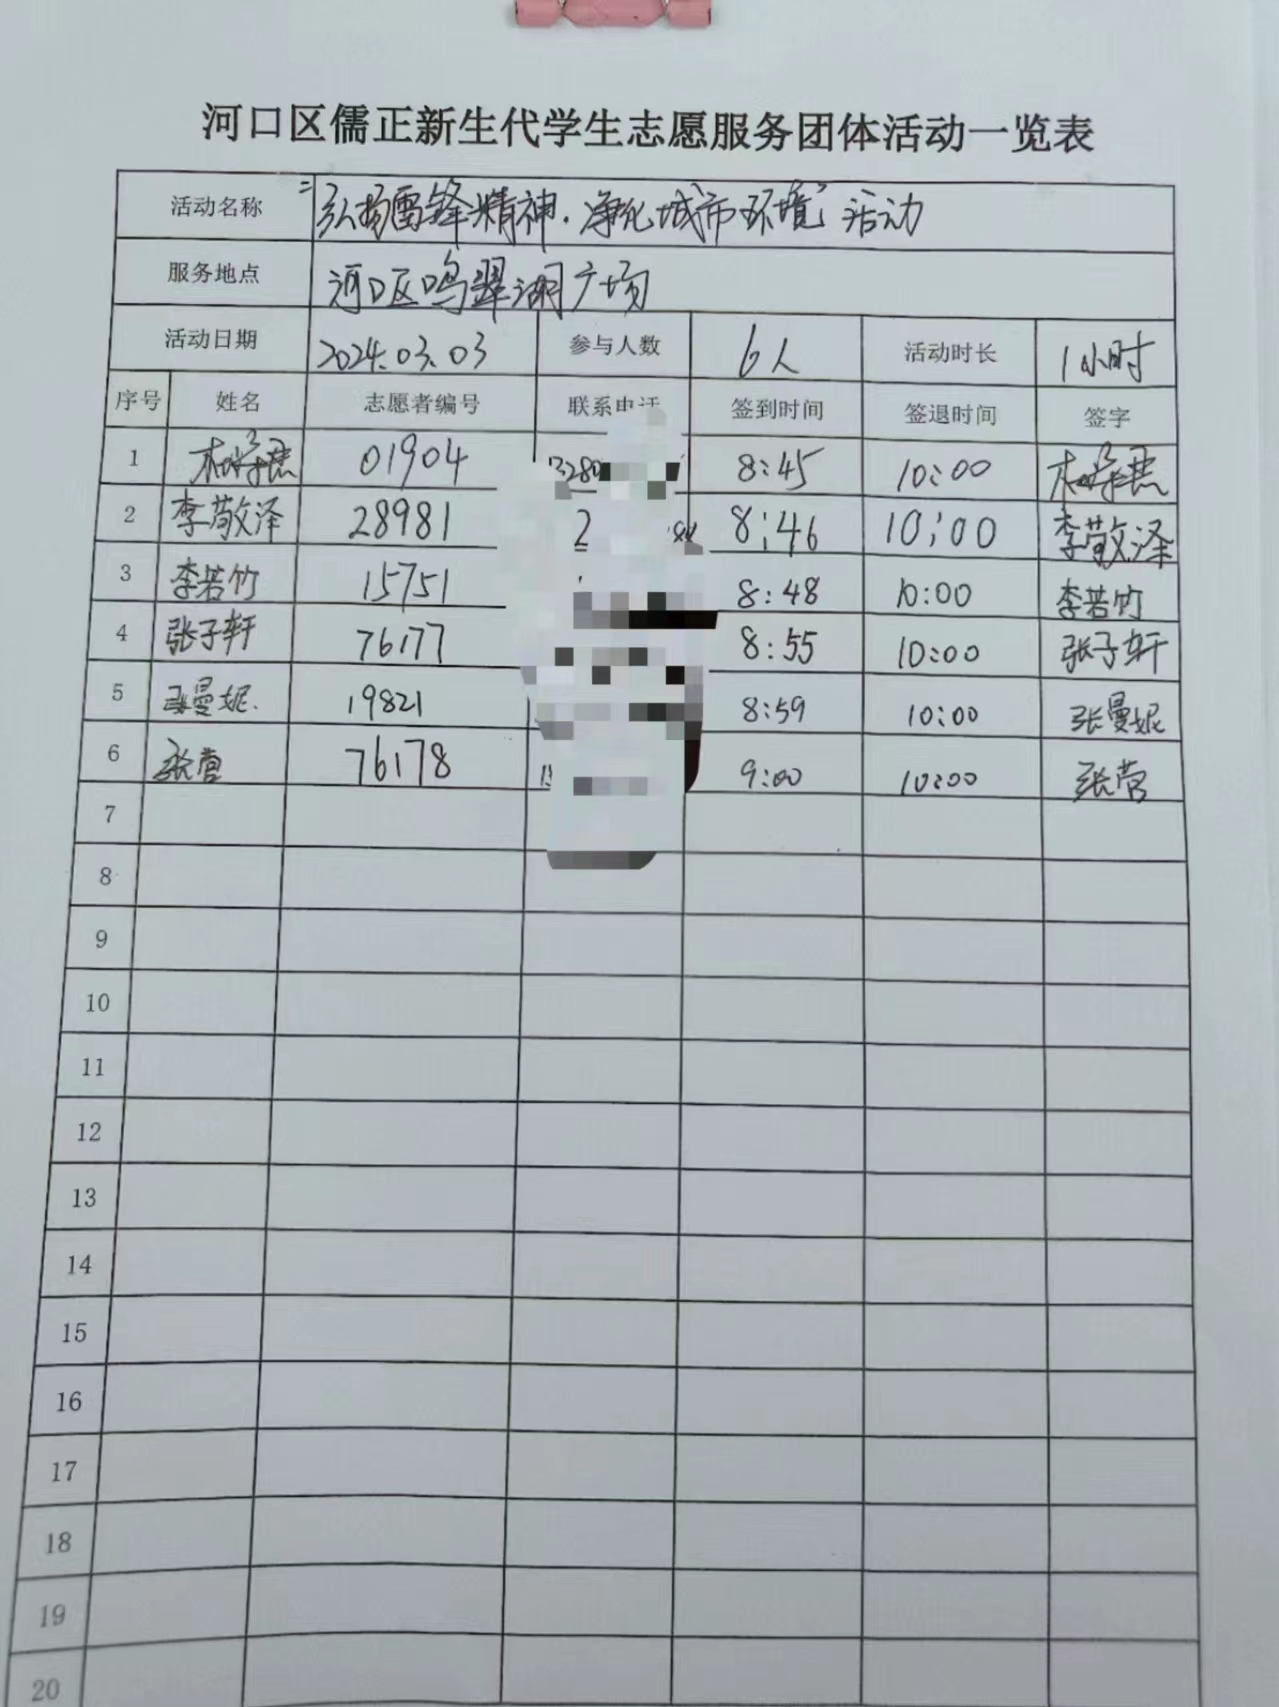 河口区儒正新生代学生志愿服务团体活动一览表
活动名称 “弘扬雷锋精神·净化城市环境”活动
服务地点 河口区鸣翠湖广场
活动日期 2024.03.03 参与人数 6人 活动时长 1小时
序号 姓名 志愿者编号 联系电话 签到时间 签退时间 签字
1 01904 8:45 10:00
2 李敬泽 28981 8:46 10:00 李敬泽
3 李若竹 15751 8:48 10:00 李若竹
4 张子轩 76177 8:55 10:00 张子轩
5 张曼妮 19821 8:59 10:00 张曼妮
6 张营 76178 9:00 10:00 张营
7
8
9
10
11
12
13
14
15
16
17
18
19
20